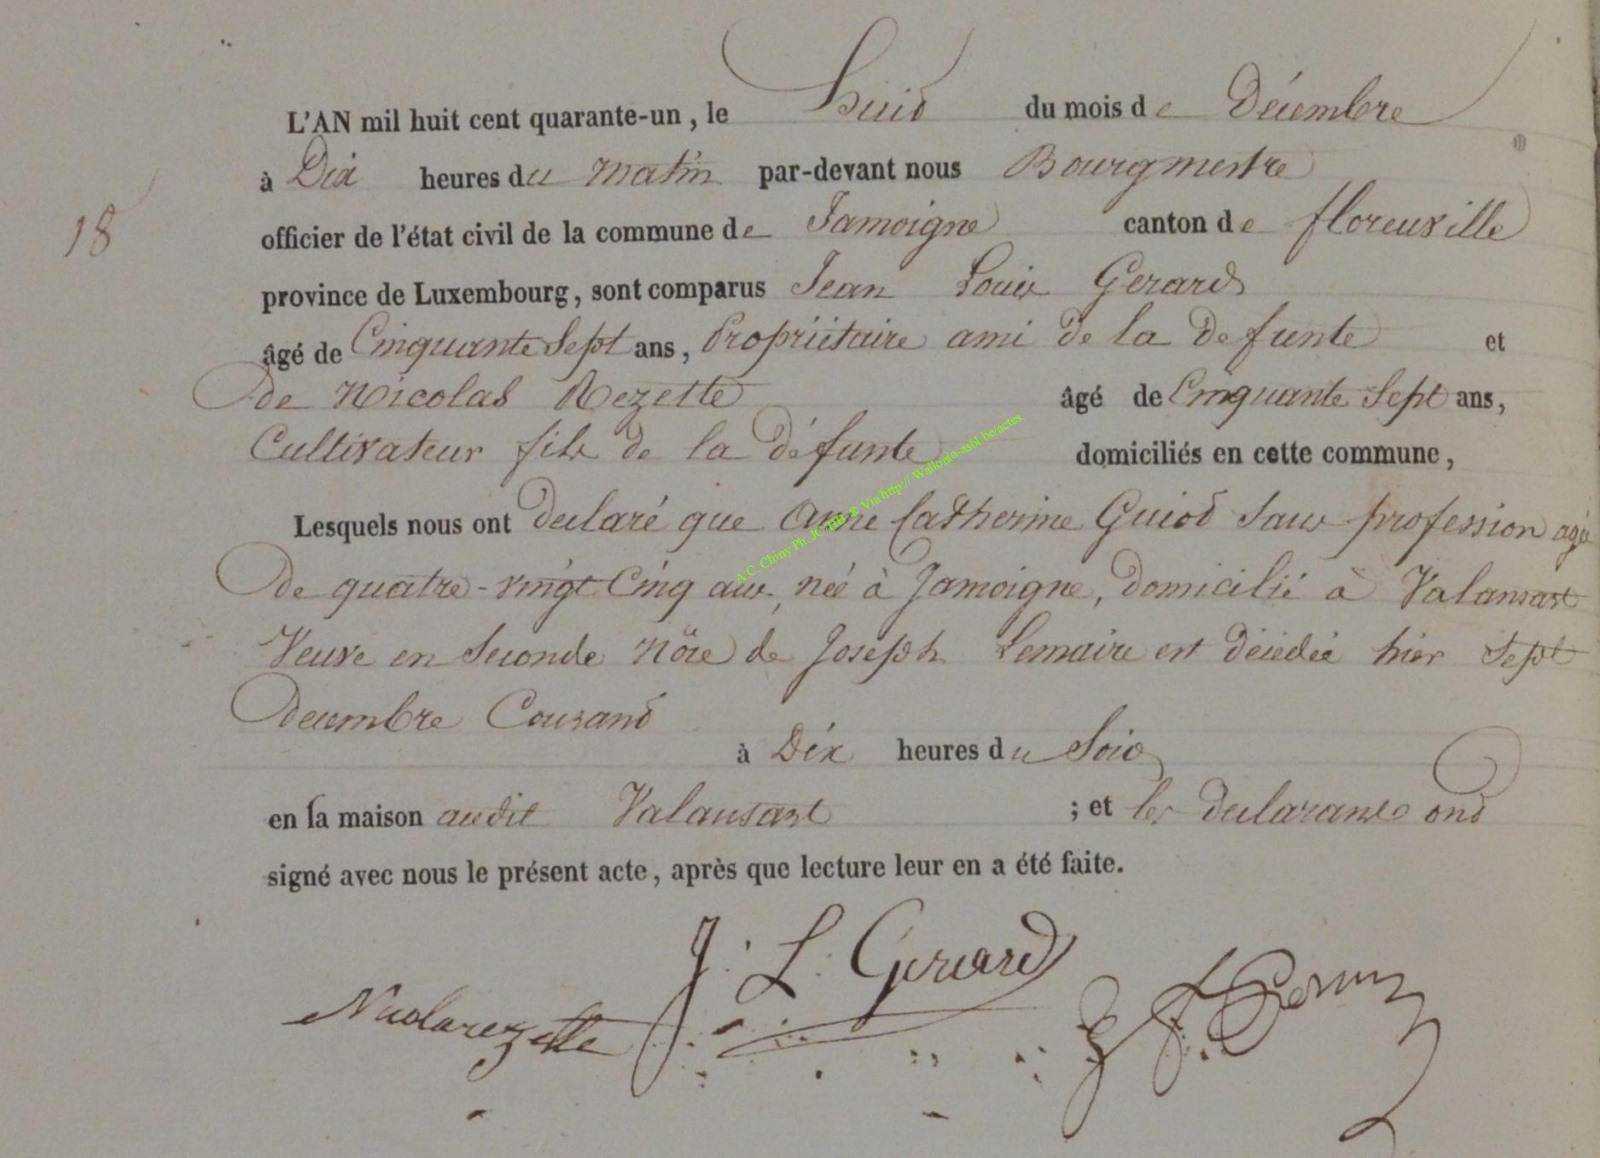 L'AN mil huit cent quarante-un, le huit du mois de Décembre
à Dix heures du matin par-devant nous Bourgmestre
18
officier de l'état civil de la commune de Jamoigne canton de florenville
province de Luxembourg, sont comparus Jean Louis Gerard
âgé de Cinquante Sept ans, Propriétaire ami de la defunte et
de Nicolas Rezette âgé de Cinquante Sept ans,
Cultivateur fils de la défunte domiciliés en cette commune,
Lesquels nous ont declaré que Anne Catherine Guiot Sans profession agée
de quatre-vingt Cinq ans, née à Jamoigne, domicilié à Valansart
Veuve en Seconde Nôce de Joseph Lemaire est décédée hier Sept
decembre Courant
à Dix heures du Soir
en sa maison audit Valansart ; et les declarants ont
signé avec nous le présent acte, après que lecture leur en a été faite.
J. L. Gerard
Nicolarezette